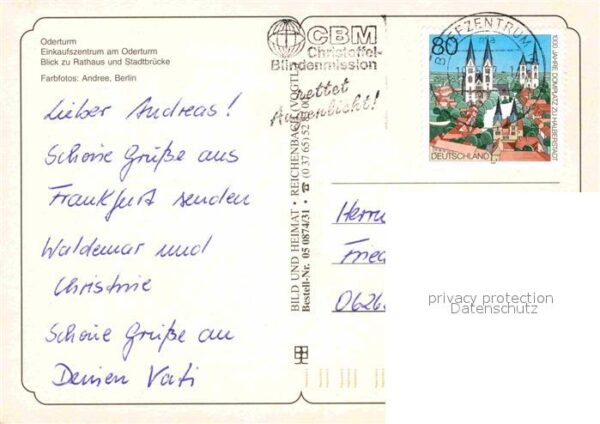 Oderturm
Einkaufszentrum am Oderturm
Blick zu Rathaus und Stadtbrücke
Farbfotos: Andree, Berlin
Lieber Andreas!
Schöne Grüße aus
Frankfurt senden
Waldemar und
Christine
Schöne Grüße an
Deinen Vati
BILD UND HEIMAT • REICHENBACH (VOGTL
Bestell-Nr. 05 0874/31 • ☎ (0 37 65) 52
CBM
Christoffel-
Blindenmission
rettet
Augenlicht!
BRIEFZENTRUM
80
DEUTSCHLAND
1000 JAHRE DOMPLATZ ZU HALBERSTADT
Herrn
Fried
0626
privacy protection
Datenschutz